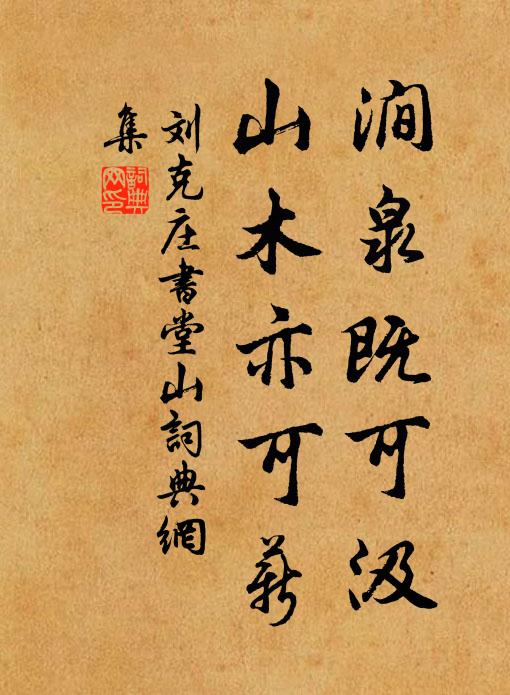 涧泉既可汲
山木亦可薪
刘克庄书堂山詞典網
集
詞典网印